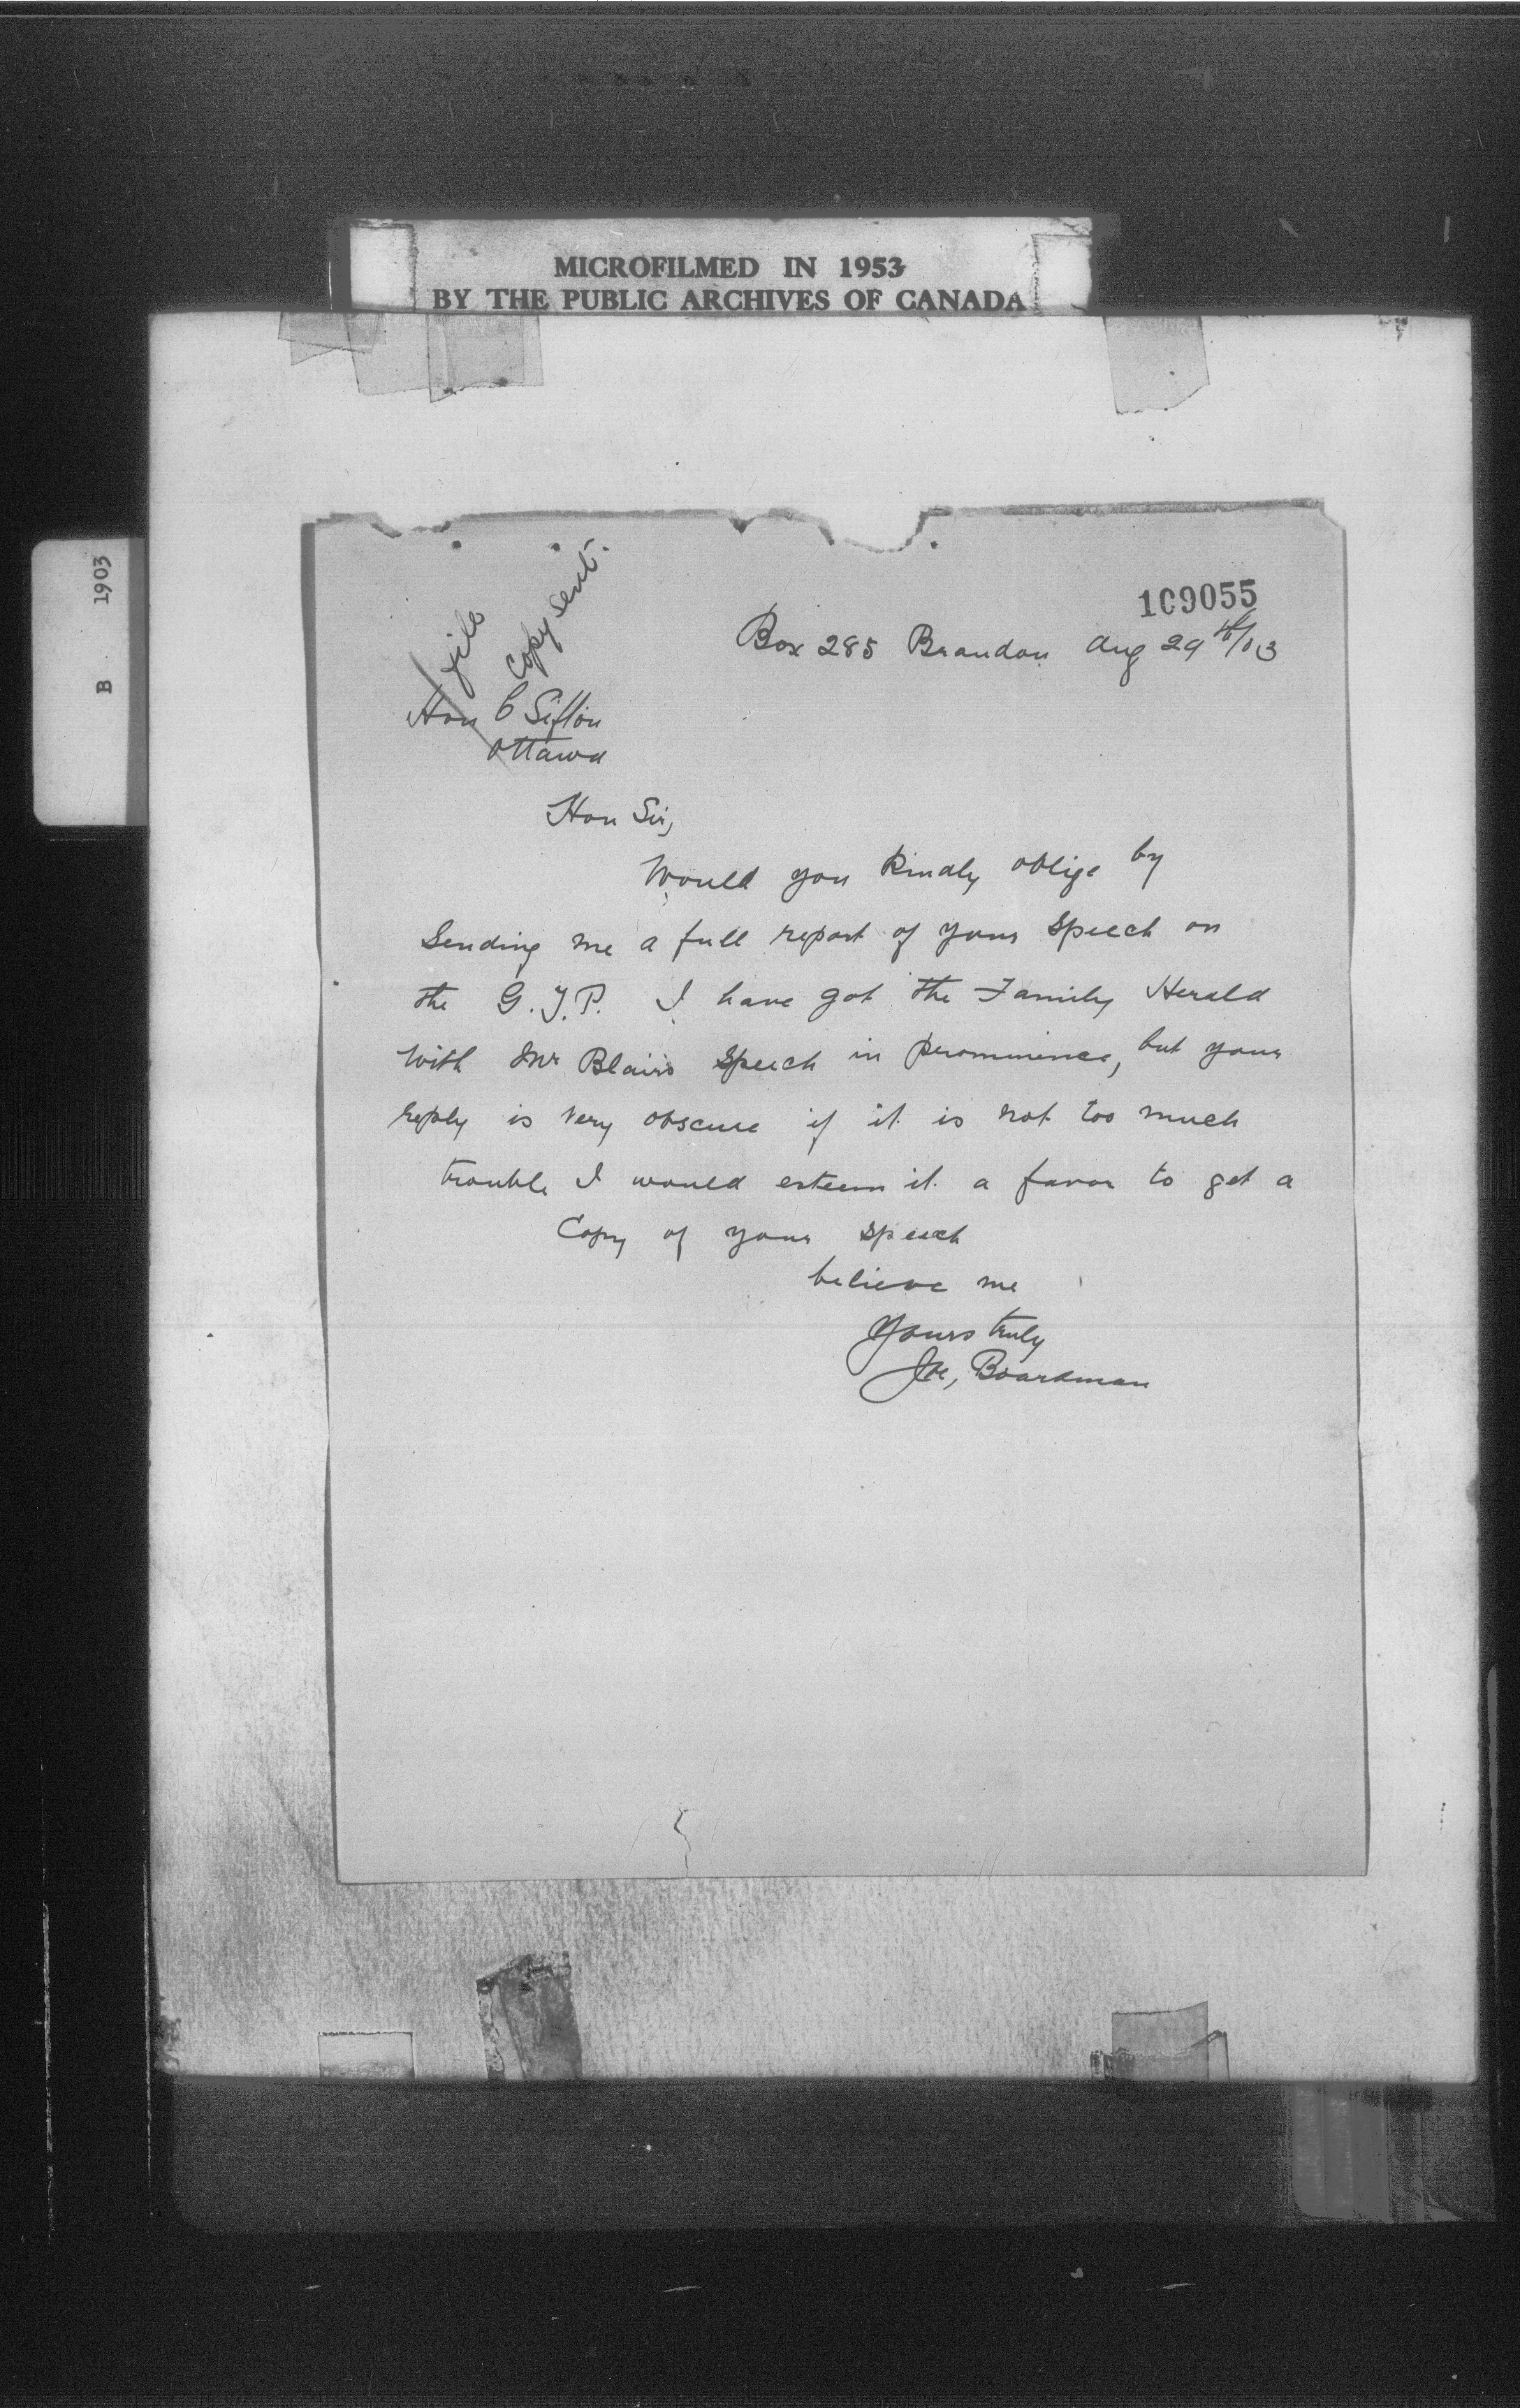 MICROFILMED IN 1953
BY THE PUBLIC ARCHIVES OF CANADA
B 1903
109055
file
copy sent.
Box 285 Brandon Aug 29th/03
Hon C Sifton
Ottawa
Hon Sir,
Would you kindly oblige by
sending me a full report of your speech on
the G.T.P. I have got the Family Herald
with Mr Blairs speech in prominence, but your
reply is very obscure if it is not too much
trouble I would esteem it a favor to get a
Copy of your speech
believe me
Yours truly
Joe, Boardman